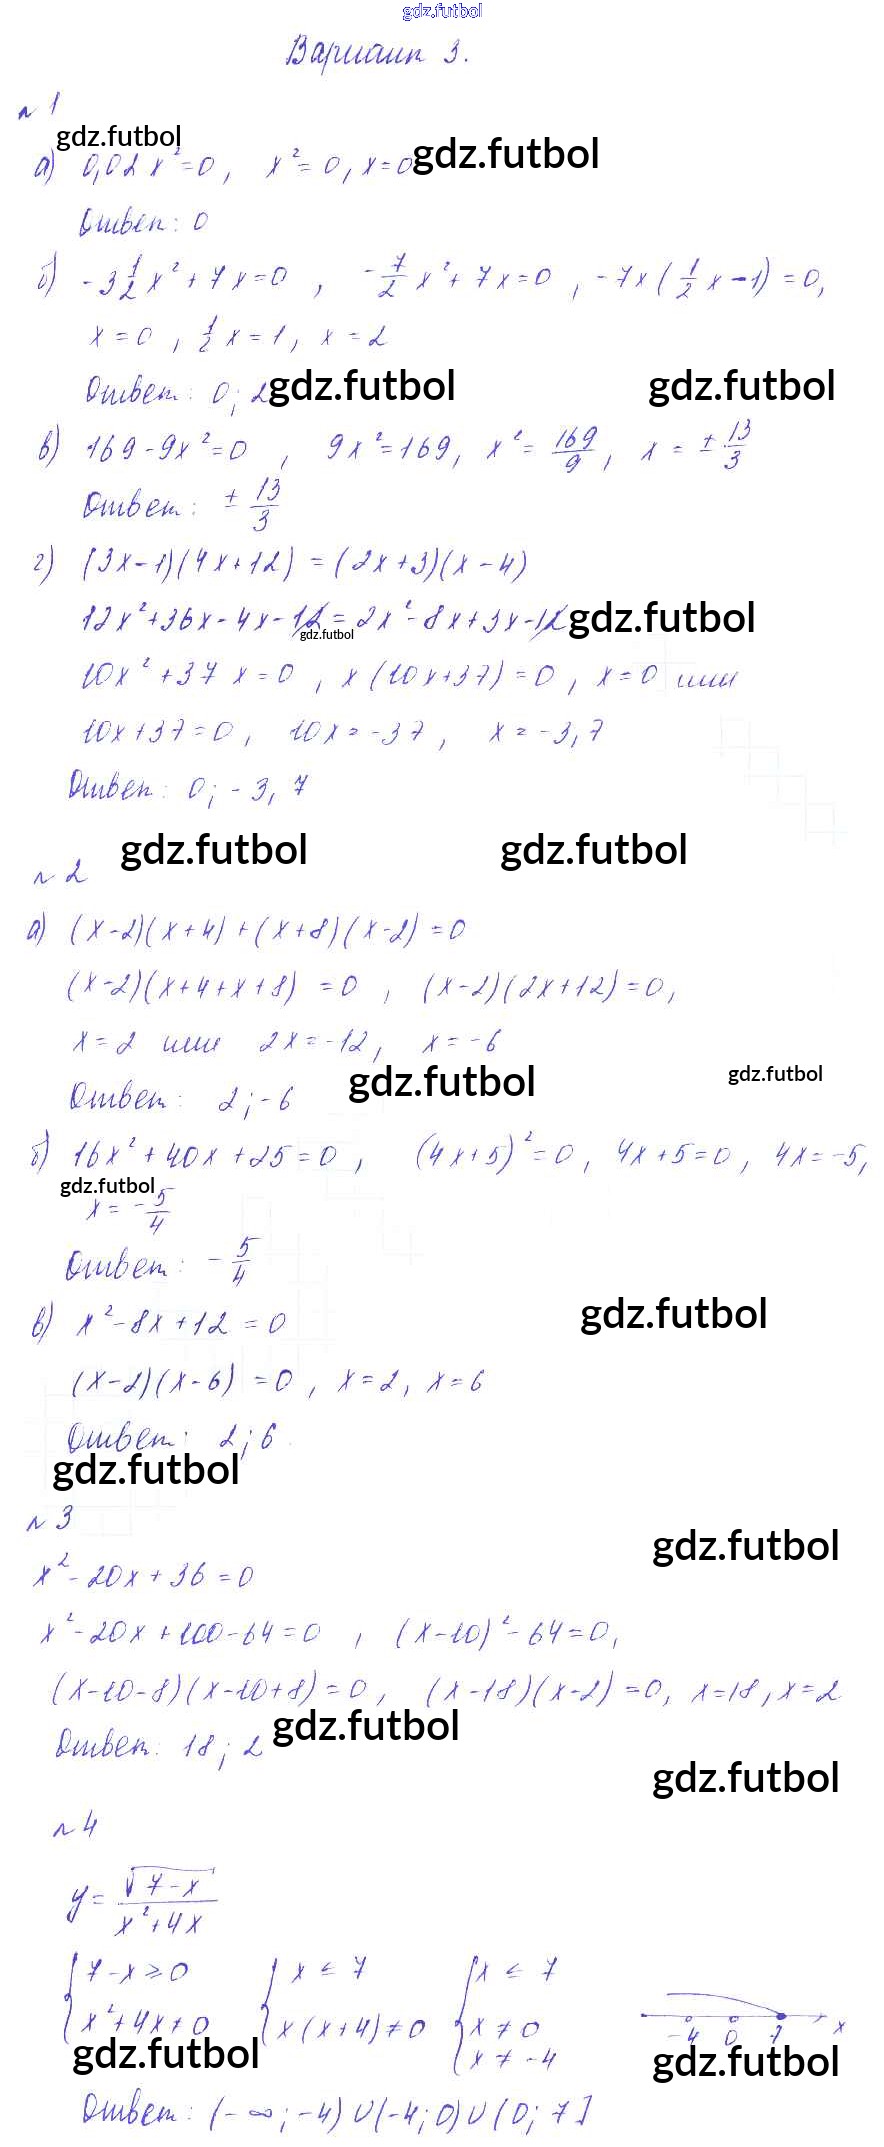 gdz.futbol
Вариант 3.
№ 1
gdz.futbol
а) 0,02x² = 0, x² = 0, x = 0 gdz.futbol
Ответ: 0
б) -3 1/2 x² + 7x = 0, -7/2 x² + 7x = 0, -7x(1/2 x - 1) = 0,
x = 0, 1/2 x = 1, x = 2
Ответ: 0; 2 gdz.futbol gdz.futbol
в) 169 - 9x² = 0, 9x² = 169, x² = 169/9, x = ± 13/3
Ответ: ± 13/3
г) (3x-1)(4x+12) = (2x+3)(x-4)
12x² + 36x - 4x - 12 = 2x² - 8x + 3x - 12 gdz.futbol
gdz.futbol
10x² + 37x = 0, x(10x+37) = 0, x = 0 или
10x + 37 = 0, 10x = -37, x = -3,7
Ответ: 0; -3,7
gdz.futbol gdz.futbol
№ 2
а) (x-2)(x+4) + (x+8)(x-2) = 0
(x-2)(x+4+x+8) = 0, (x-2)(2x+12) = 0,
x = 2 или 2x = -12, x = -6
Ответ: 2; -6 gdz.futbol gdz.futbol
б) 16x² + 40x + 25 = 0, (4x+5)² = 0, 4x+5 = 0, 4x = -5,
gdz.futbol
x = -5/4
Ответ: -5/4
в) x² - 8x + 12 = 0 gdz.futbol
(x-2)(x-6) = 0, x = 2, x = 6
Ответ: 2; 6
gdz.futbol
№ 3
gdz.futbol
x² - 20x + 36 = 0
x² - 20x + 100 - 64 = 0, (x-10)² - 64 = 0,
(x-10-8)(x-10+8) = 0, (x-18)(x-2) = 0, x = 18, x = 2
Ответ: 18; 2 gdz.futbol
gdz.futbol
№ 4
y = √(7-x) / (x²+4x)
7-x ≥ 0 x ≤ 7 x ≤ 7
x²+4x ≠ 0 x(x+4) ≠ 0 x ≠ 0 -4 0 7 x
gdz.futbol x ≠ -4 gdz.futbol
Ответ: (-∞; -4) ∪ (-4; 0) ∪ (0; 7]